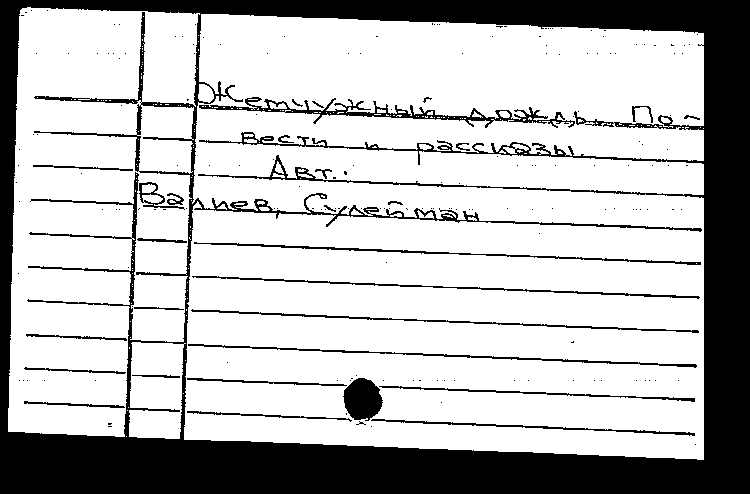 Жемчужный дождь. По-
вести и рассказы.
Авт.:
Валиев, Сулейман